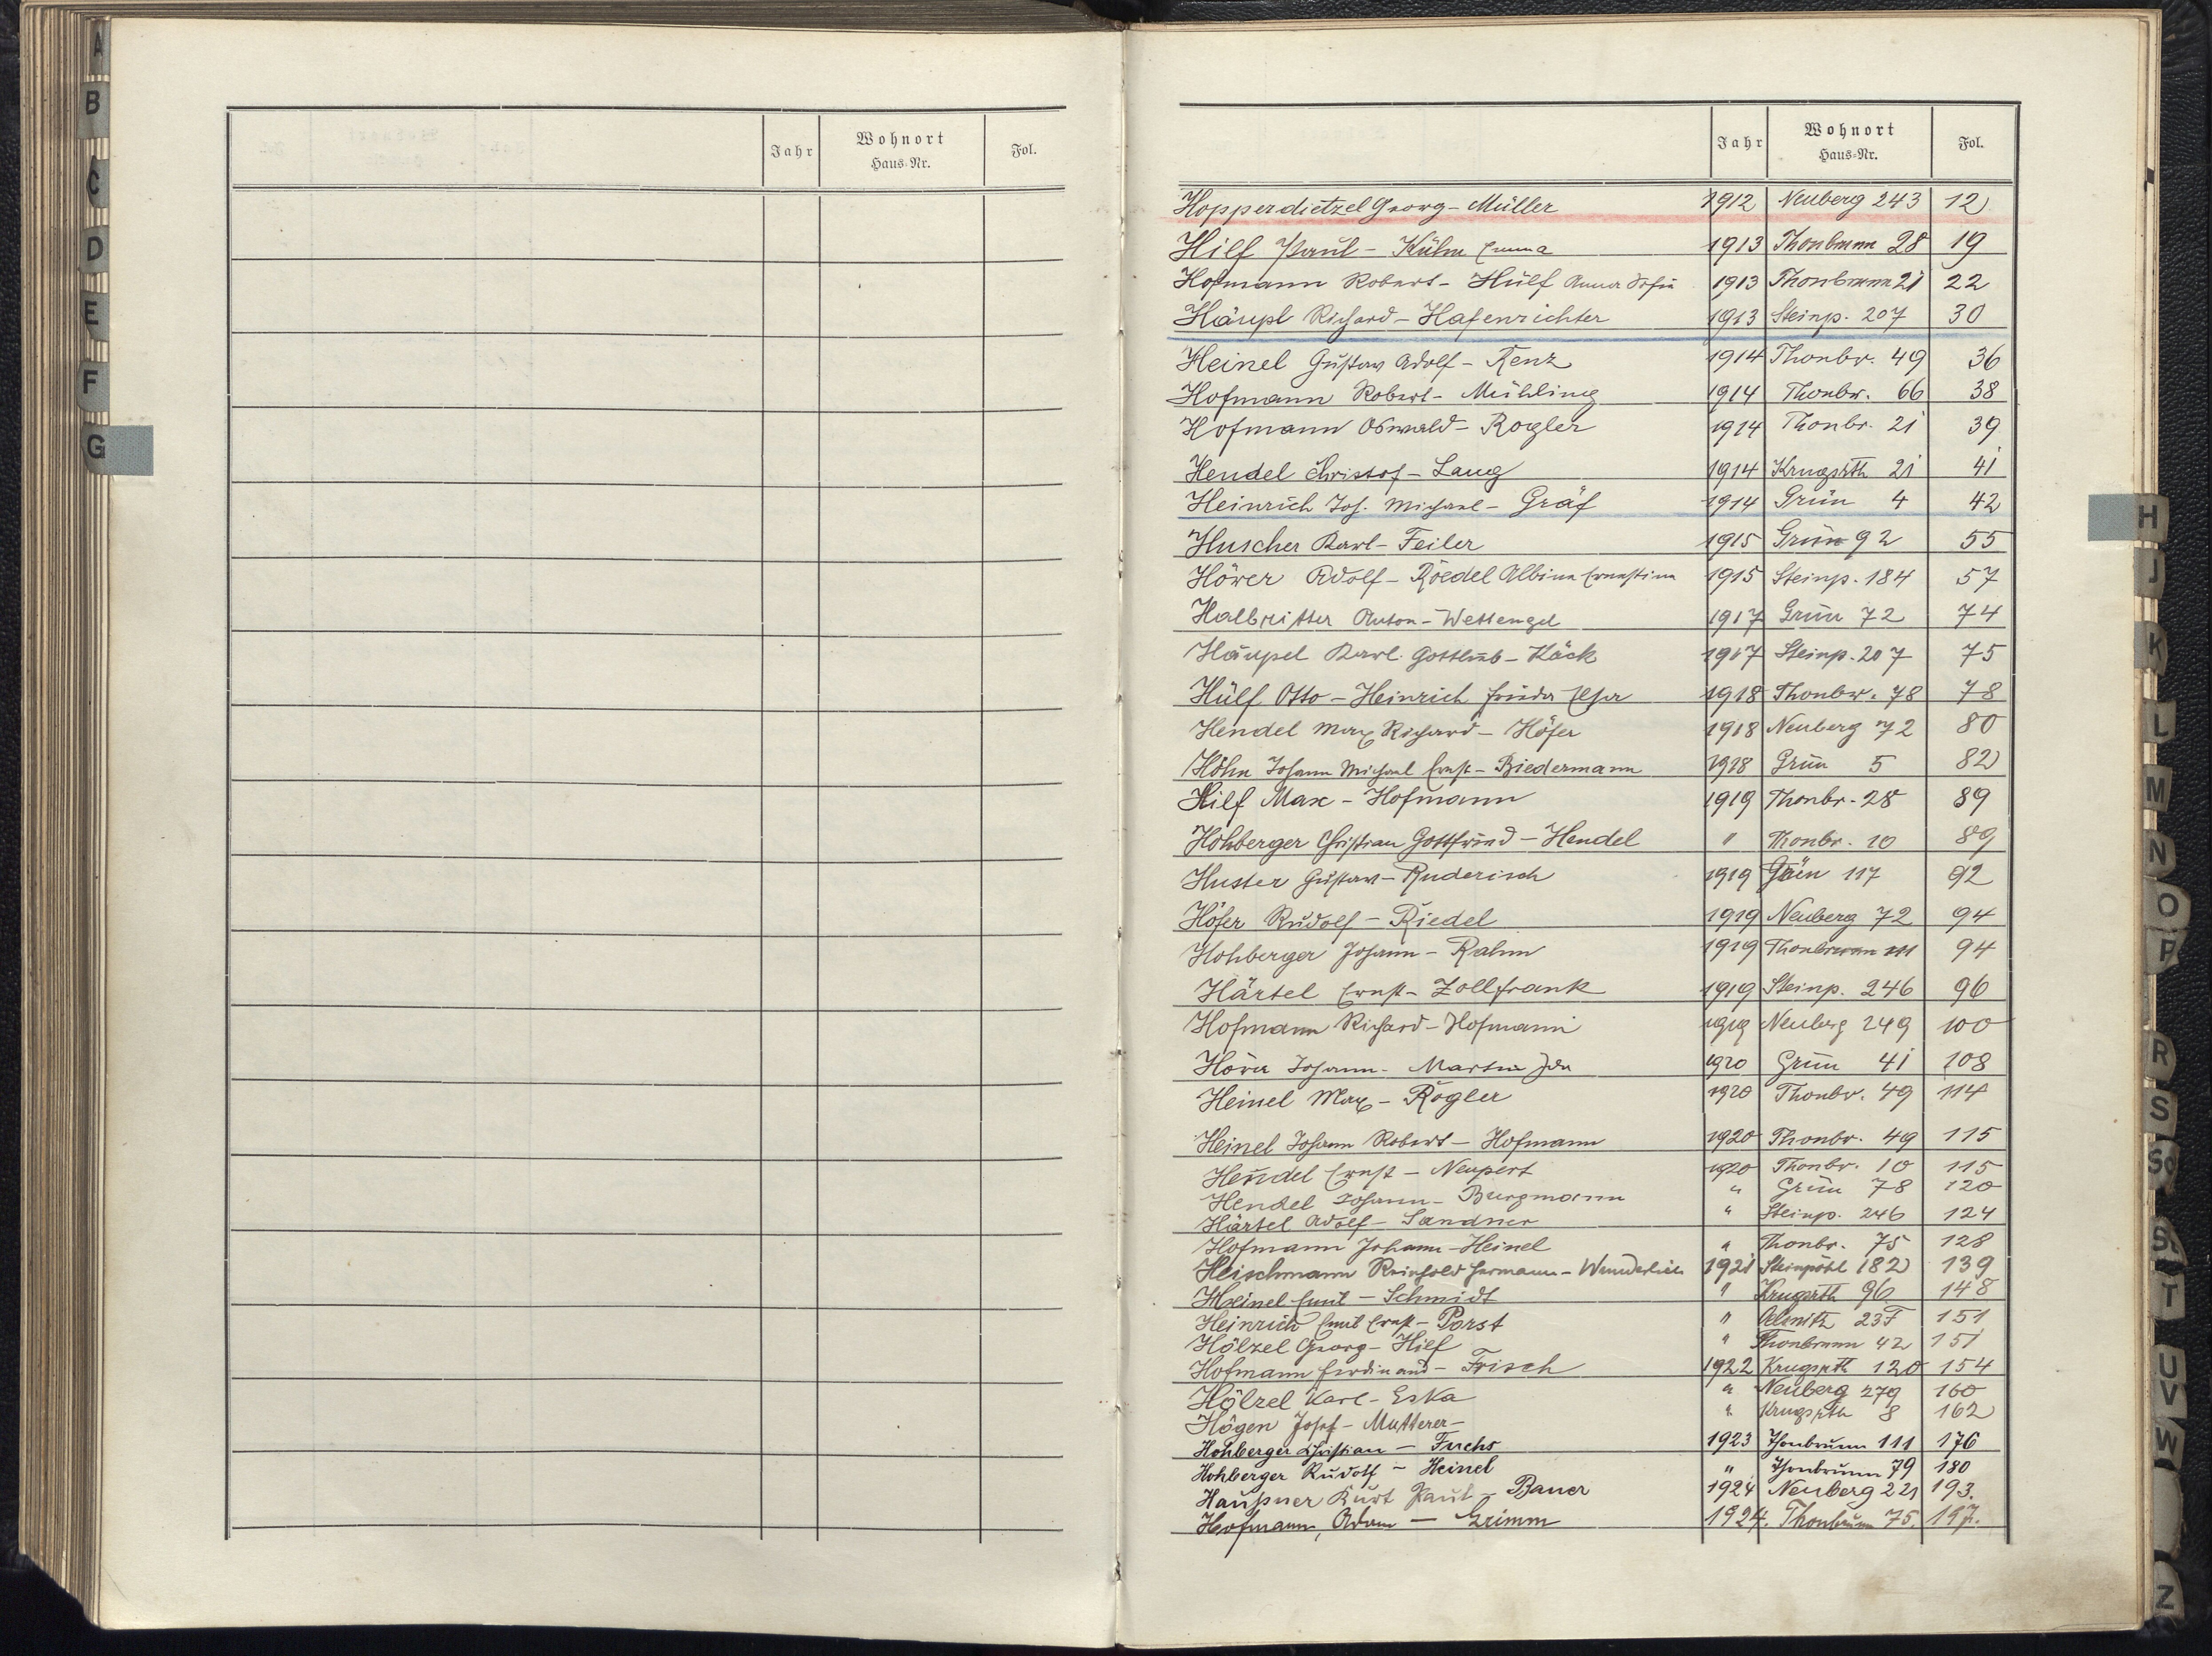 A
B
C
D
E
F
G
Jahr Wohnort Haus-Nr. Fol.
Jahr Wohnort Haus-Nr. Fol.
Hopperdietzel Georg - Müller 1912 Neuberg 243 12
Hilf Paul - Kühn Emma 1913 Thonbrunn 28 19
Hofmann Robert - Hülf Anna Sofie 1913 Thonbrunn 21 22
Häupl Richard - Hafenrichter 1913 Steinp. 207 30
Heinel Gustav Adolf - Renz 1914 Thonbr. 49 36
Hofmann Robert - Mühling 1914 Thonbr. 66 38
Hofmann Oswald - Rogler 1914 Thonbr. 21 39
Hendel Christof - Lang 1914 Krugsrth 21 41
Heinrich Joh. Michael - Gräf 1914 Grün 4 42
Huscher Karl - Feiler 1915 Grün 92 55
Höwer Adolf - Röedel Albina Ernestina 1915 Steinp. 184 57
Halbritter Anton - Wettengel 1917 Grün 72 74
Häupel Karl Gottlieb - Käck 1917 Steinp. 207 75
Hülf Otto - Heinrich Frieda 1918 Thonbr. 78 78
Hendel Max Richard - Höfer 1918 Neuberg 72 80
Höhn Johann Michael Ernst - Biedermann 1918 Grün 5 82
Hilf Max - Hofmann 1919 Thonbr. 28 89
Hohberger Christian Gottfried - Hendel " Thonbr. 10 89
Huster Gustav - Ruderisch 1919 Grün 117 92
Höfer Rudolf - Riedel 1919 Neuberg 72 94
Hohberger Johann - Rahm 1919 Thonbrunn 111 94
Härtel Ernst - Zollfrank 1919 Steinp. 246 96
Hofmann Richard - Hofmann 1919 Neuberg 249 100
Johann - Martin Ida 1920 Grün 41 108
Heinel Max - Rogler 1920 Thonbr. 49 114
Heinel Johann Robert - Hofmann 1920 Thonbr. 49 115
Hendel Ernst - Neupert 1920 Thonbr. 10 115
Hendel Johann - Burgmann " Grün 78 120
Härtel Adolf - Sandner " Steinp. 246 124
Hofmann Johann - Heinel " Thonbr. 75 128
Heischmann Reinhold Hermann - Wunderlich 1921 Steinpöhl 182 139
Heinel Emil - Schmidt " Krugsrth 96 148
Heinrich Emil Ernst - Porst " 151
Hölzel Georg - Hilf " Thonbrunn 42 151
Hofmann Ferdinand - Frisch 1922 Krugsrth 120 154
Hölzel Karl - Eska " Neuberg 279 160
Högen Josef - Mutterer - " Krugsrth 8 162
Hohberger Christian - Fuchs 1923 Thonbrunn 111 176
Hohberger Rudolf - Heinel " Thonbrunn 79 180
Haußner Kurt Paul - Bauer 1924 Neuberg 221 193.
Hofmann, Adam - Grimm 1924. Thonbrunn 75. 197.
H
J
K
L
M
N
O
P
R
S
Sch
St
T
U
V
W
Z